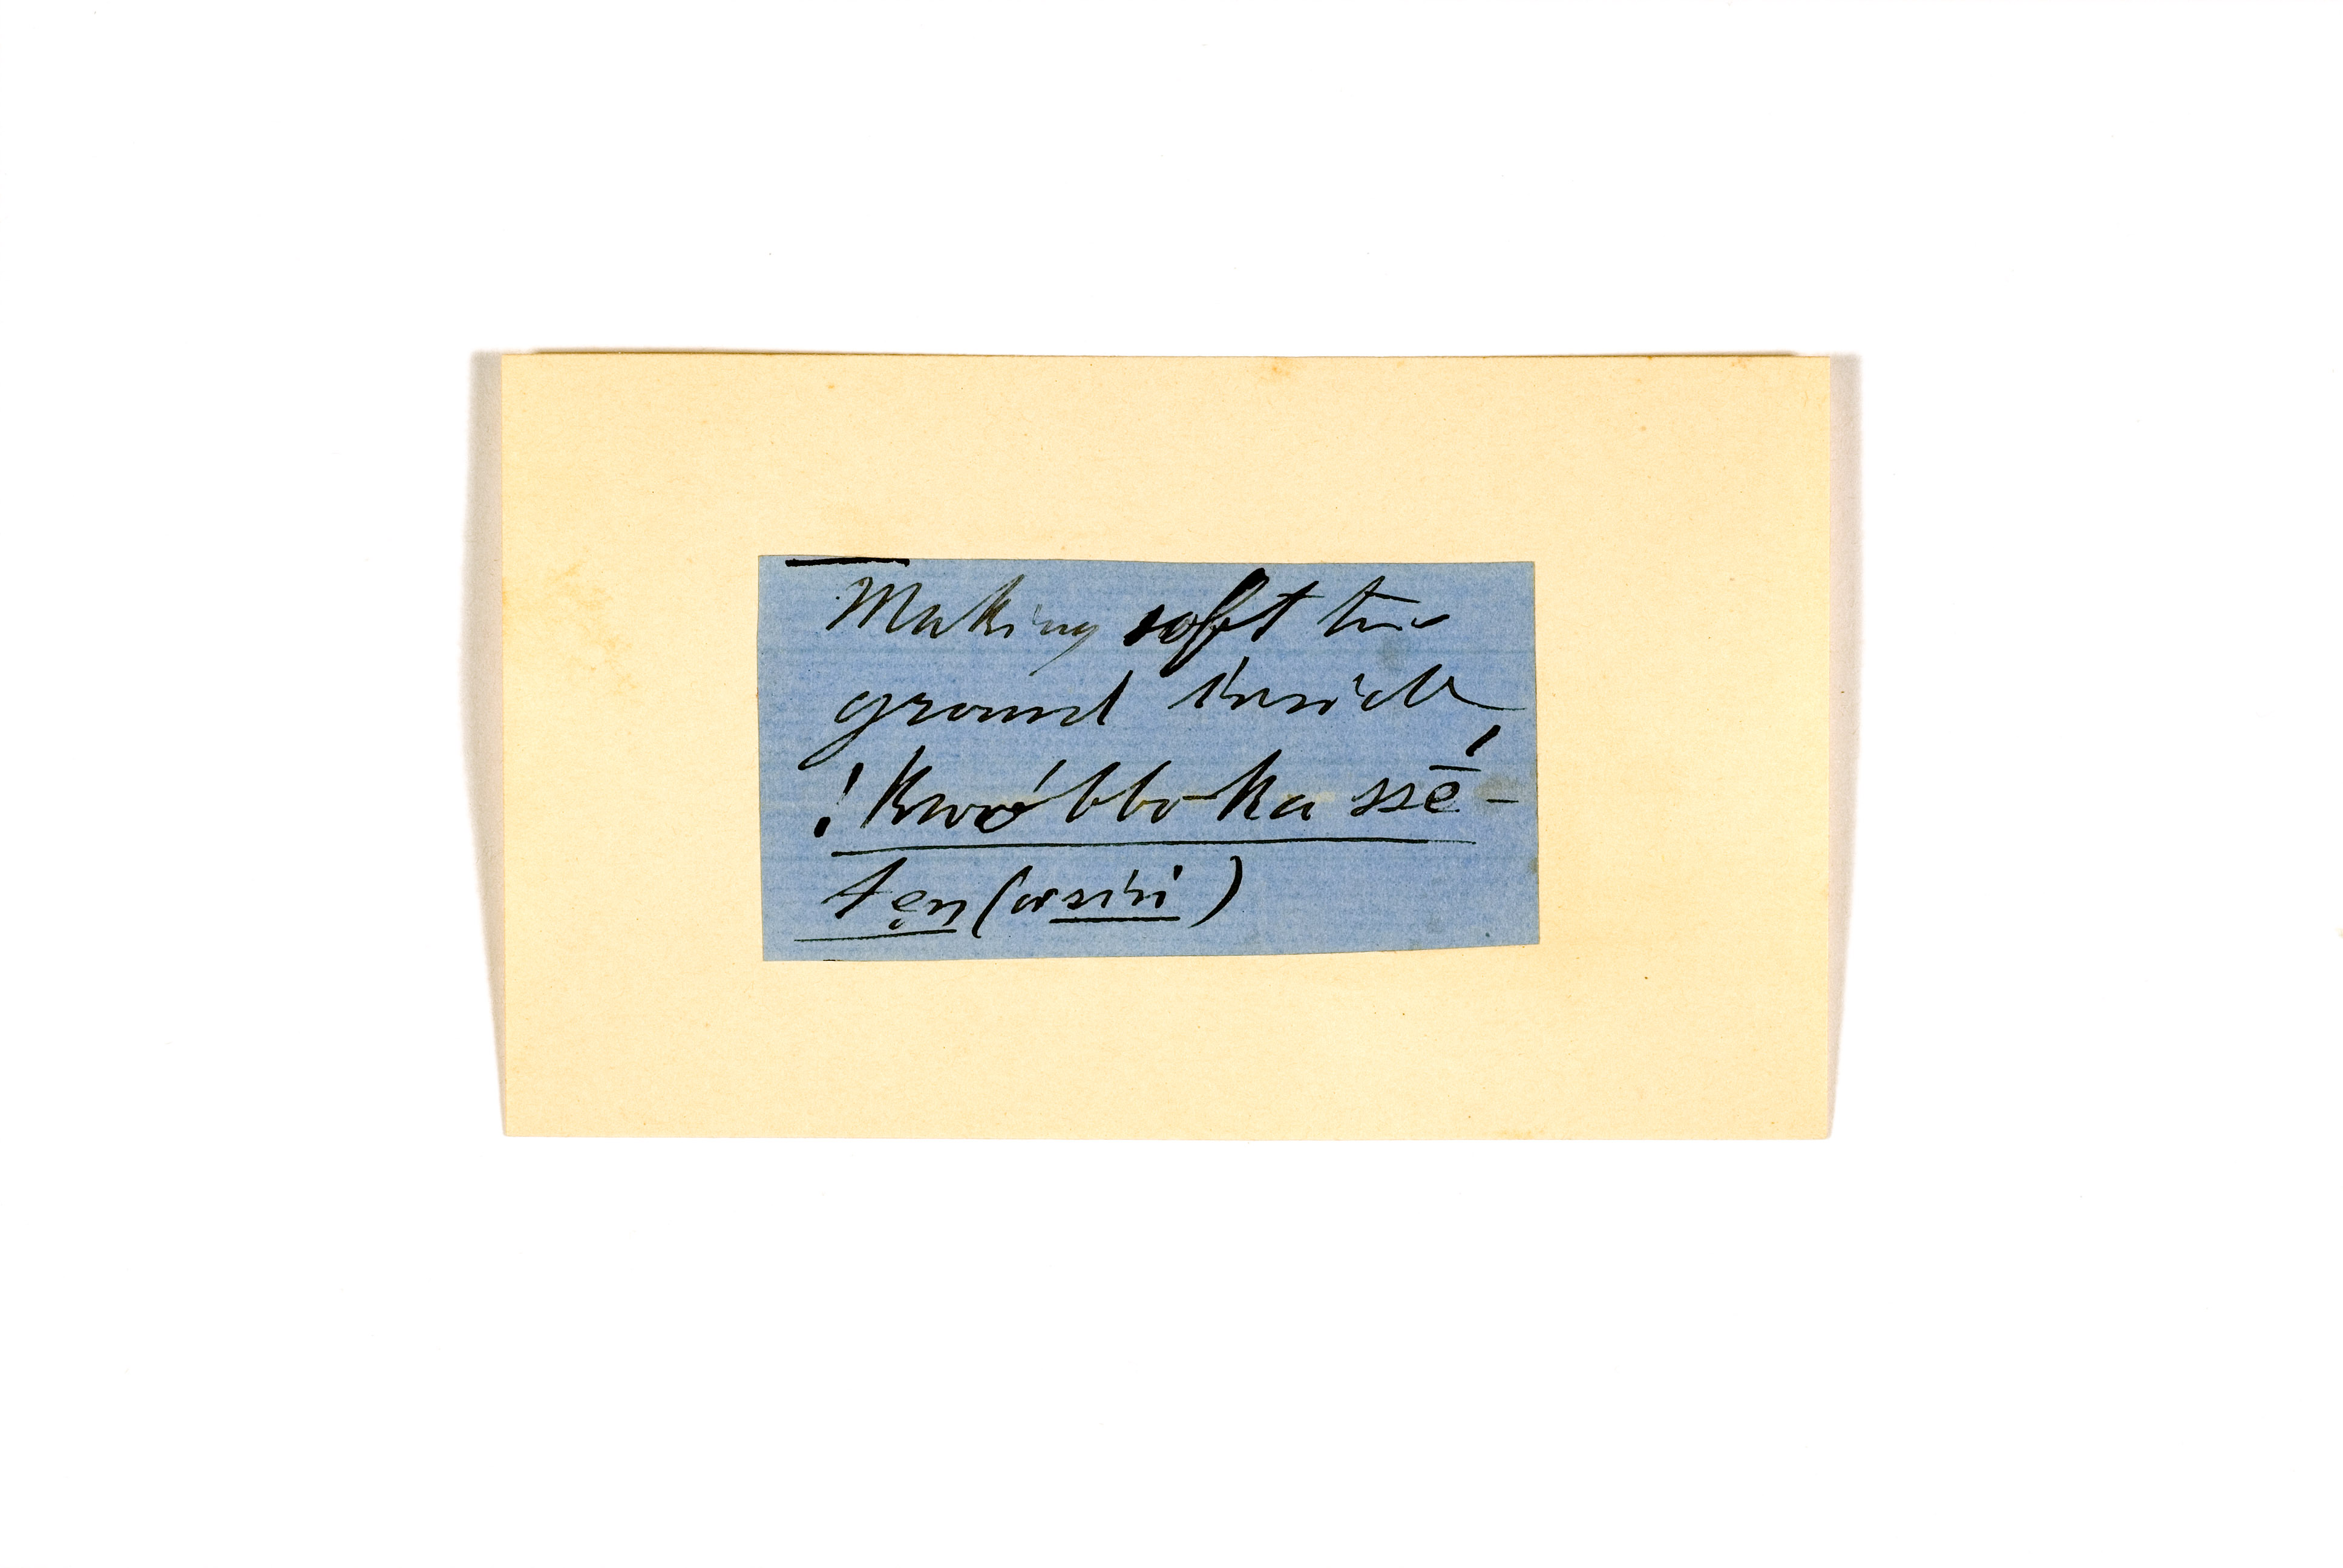 Making soft the
ground inside
!kwobbo-ka ssḗ-
tẹn (or síṅ)